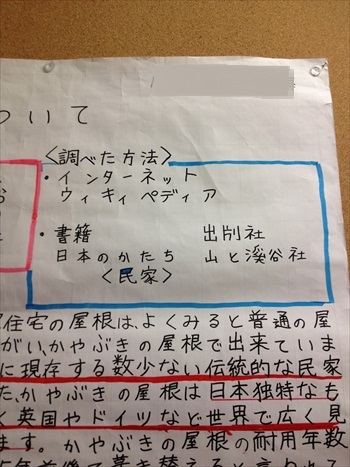 ついて
〈調べた方法〉
・インターネット
ウィキィペディア
・書籍 出別社
日本のかたち 山と溪谷社
〈民家〉
住宅の屋根は、よくみると普通の屋
がい、かやぶきの屋根で出来ていま
に現存する数少ない伝統的な民家
た、かやぶきの屋根は日本独特なも
く英国やドイツなど世界で広く見
ます。かやぶきの屋根の耐用年数